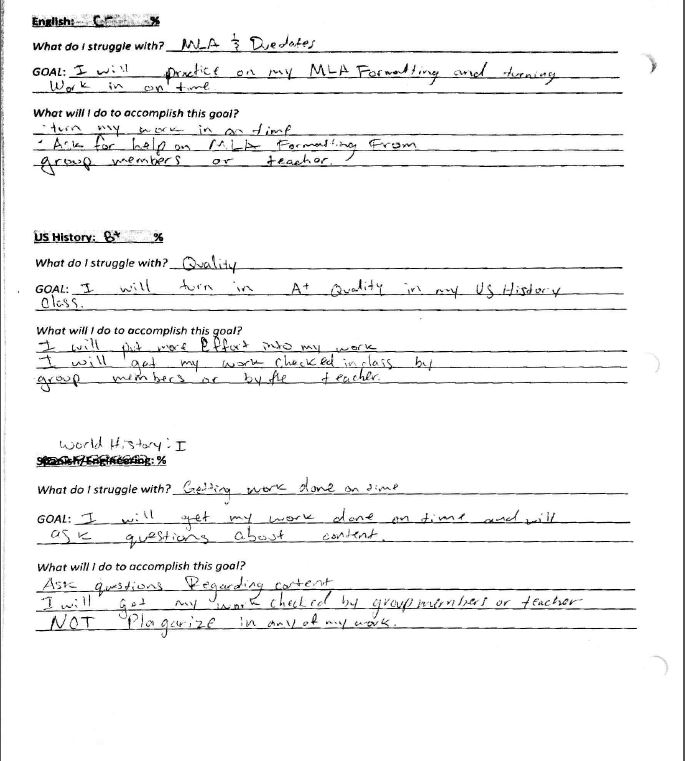 English: C %
What do I struggle with? MLA & Duedates
GOAL: I will practice on my MLA Formatting and turning
Work in on time
What will I do to accomplish this goal?
· turn my work in on time
· Ask for help on MLA Formatting From
group members or teacher.
US History: B+ %
What do I struggle with? Quality
GOAL: I will turn in A+ Quality in my US History
Class.
What will I do to accomplish this goal?
I will put more Effort into my work
I will get my work checked in class by
group members or by the teacher.
World History: I
Spanish/Engineering: %
What do I struggle with? Getting work done on time
GOAL: I will get my work done on time and will
ask questions about content.
What will I do to accomplish this goal?
Ask qustions Regarding content
I will get my work checked by group members or teacher
NOT Plagarize in any of my work.